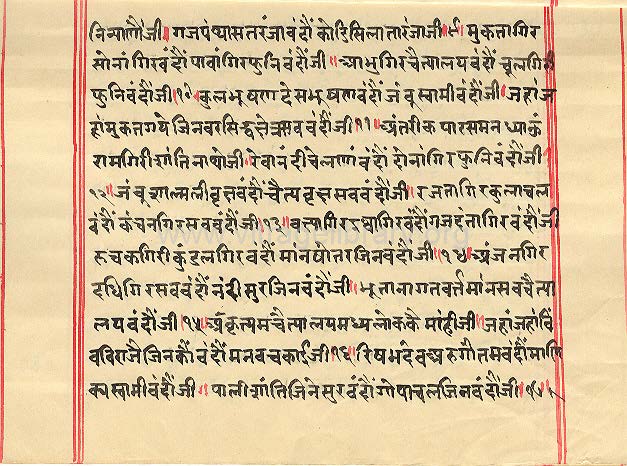 निव्वाणौंजी। गजपंथ्यासतरंजावंदौं कोटिसिलातारंजाजी।९। मुकतागिर
सोनांगिरवंदौं पावांगिरफुनिवंदौंजी॥ आभुगिरचैत्यालयवंदौं चूलगिरी
फुनिवंदौंजी।१०। कुलभूषणदेसभूषणवंदौं जंबूस्वामीवंदौंजी। जहांज
हांमुकतगयेजिनवरसिद्धषेत्रसबवंदौंजी।११। अंतरीकपारसमनध्याऊं
रामगिरीशांतिनाथोजी। रेवानदीचेलणांवंदौं दोनांगिरफुनिवंदौंजी।
१२। जंबूशाल्मलीवृक्षवंदौं चैत्यवृक्षसबवंदौंजी। रजतागिरकुलाचल
वंदौं कंचनगिरसबवंदौंजी।१३। वक्ष्यारगिरइष्वागिरवंदौं गजदंतागिरवंदौंजी
रूचकगिरीकुंडलगिरवंदौं मानषोतरजिनवंदौंजी।१४। अंजनगिर
दधिगिरसबवंदौं नंदीसुरजिनवंदौंजी। भूतानागतवर्त्तमांनसबचैत्या
लयवंदौंजी।१५। अकृत्यमचैत्यालयमध्यलोककैमांहीजी। जहांजहांविं
बविराजैजिनकौंवंदौं मनवचकाईजी।१६। रिषभदेवअरुगौतमवंदौं माणि
क्यस्वामीवंदौंजी। पालीशांतिजिनेसुरवंदौं गोपाचलजिनवंदौंजी।१७।